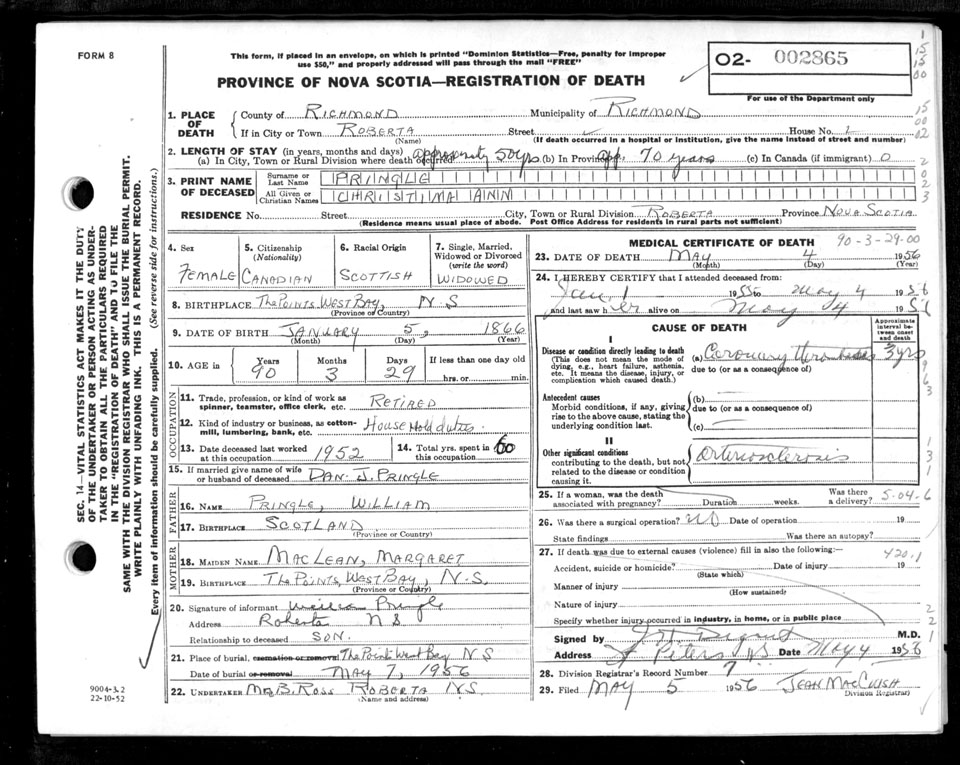 FORM 8
This form, if placed in an envelope, on which is printed "Dominion Statistics—Free, penalty for improper
use $50," and properly addressed will pass through the mail "FREE"
PROVINCE OF NOVA SCOTIA—REGISTRATION OF DEATH
O2- 002865
For use of the Department only
SEC. 14—VITAL STATISTICS ACT MAKES IT THE DUTY
OF THE UNDERTAKER OR PERSON ACTING AS UNDER-
TAKER TO OBTAIN ALL THE PARTICULARS REQUIRED
IN THE "REGISTRATION OF DEATH" AND TO FILE THE
SAME WITH THE DIVISION REGISTRAR WHO SHALL ISSUE THE BURIAL PERMIT.
WRITE PLAINLY WITH UNFADING INK. THIS IS A PERMANENT RECORD.
Every item of information should be carefully supplied. (See reverse side for instructions.)
1. PLACE OF DEATH
County of RICHMOND Municipality of RICHMOND
If in City or Town ROBERTA Street House No.
(Name) (If death occurred in a hospital or institution, give the name instead of street and number)
2. LENGTH OF STAY (in years, months and days)
(a) In City, Town or Rural Division where death occurred 50 yrs (b) In Province app. 70 years (c) In Canada (if immigrant) 0
3. PRINT NAME OF DECEASED
Surname or Last Name PRINGLE
All Given or Christian Names CHRISTMA ANN
RESIDENCE No. Street City, Town or Rural Division ROBERTA Province NOVA SCOTIA
(Residence means usual place of abode. Post Office Address for residents in rural parts not sufficient)
4. Sex
FEMALE
5. Citizenship (Nationality)
CANADIAN
6. Racial Origin
SCOTTISH
7. Single, Married, Widowed or Divorced (write the word)
WIDOWED
8. BIRTHPLACE The Points West Bay, N.S
(Province or Country)
9. DATE OF BIRTH JANUARY 5, 1866
(Month) (Day) (Year)
10. AGE in Years 90 Months 3 Days 29 If less than one day old hrs. or min.
OCCUPATION
11. Trade, profession, or kind of work as
spinner, teamster, office clerk, etc. RETIRED
12. Kind of industry or business, as cotton-
mill, lumbering, bank, etc. Household duties.
13. Date deceased last worked
at this occupation 1952
14. Total yrs. spent in
this occupation 60
15. If married give name of wife
or husband of deceased DAN. J. PRINGLE
FATHER
16. NAME PRINGLE, WILLIAM
17. BIRTHPLACE SCOTLAND.
(Province or Country)
MOTHER
18. MAIDEN NAME MACLEAN, MARGARET
19. BIRTHPLACE The Points, West Bay, N.S.
(Province or Country)
20. Signature of informant Pringle
Address Roberta N S
Relationship to deceased SON.
21. Place of burial, cremation or removal The Points West Bay N.S
Date of burial or removal MAY 7, 1956
22. UNDERTAKER B. ROSS ROBERTA N.S.
(Name and address)
9004-3.2
22-10-52
MEDICAL CERTIFICATE OF DEATH 90-3-29-00
23. DATE OF DEATH May 4 1956
(Month) (Day) (Year)
24. I HEREBY CERTIFY that I attended deceased from:
Jan. 1 1955 to May 4 1956
and last saw her alive on May 4 1956
CAUSE OF DEATH
Approximate interval between onset and death
I
Disease or condition directly leading to death
(This does not mean the mode of
dying, e.g., heart failure, asthenia,
etc. It means the disease, injury, or
complication which caused death.)
(a) Coronary thrombosis 3 yrs
due to (or as a consequence of)
Antecedent causes
Morbid conditions, if any, giving
rise to the above cause, stating the
underlying condition last.
(b)
due to (or as a consequence of)
(c)
II
Other significant conditions
contributing to the death, but not
related to the disease or condition
causing it.
Arteriosclerosis
25. If a woman, was the death
associated with pregnancy? Duration weeks. Was there a delivery? 5-04-6
26. Was there a surgical operation? NO Date of operation 19
State findings Was there an autopsy?
27. If death was due to external causes (violence) fill in also the following:— 420.1
Accident, suicide or homicide? Date of injury 19
(State which)
Manner of injury
(How sustained)
Nature of injury
Specify whether injury occurred in industry, in home, or in public place
Signed by M.D.
Address St Peters NS Date May 4 1956
28. Division Registrar's Record Number 7
29. Filed MAY 5 1956 JEAN MACCUISH
Division Registrar